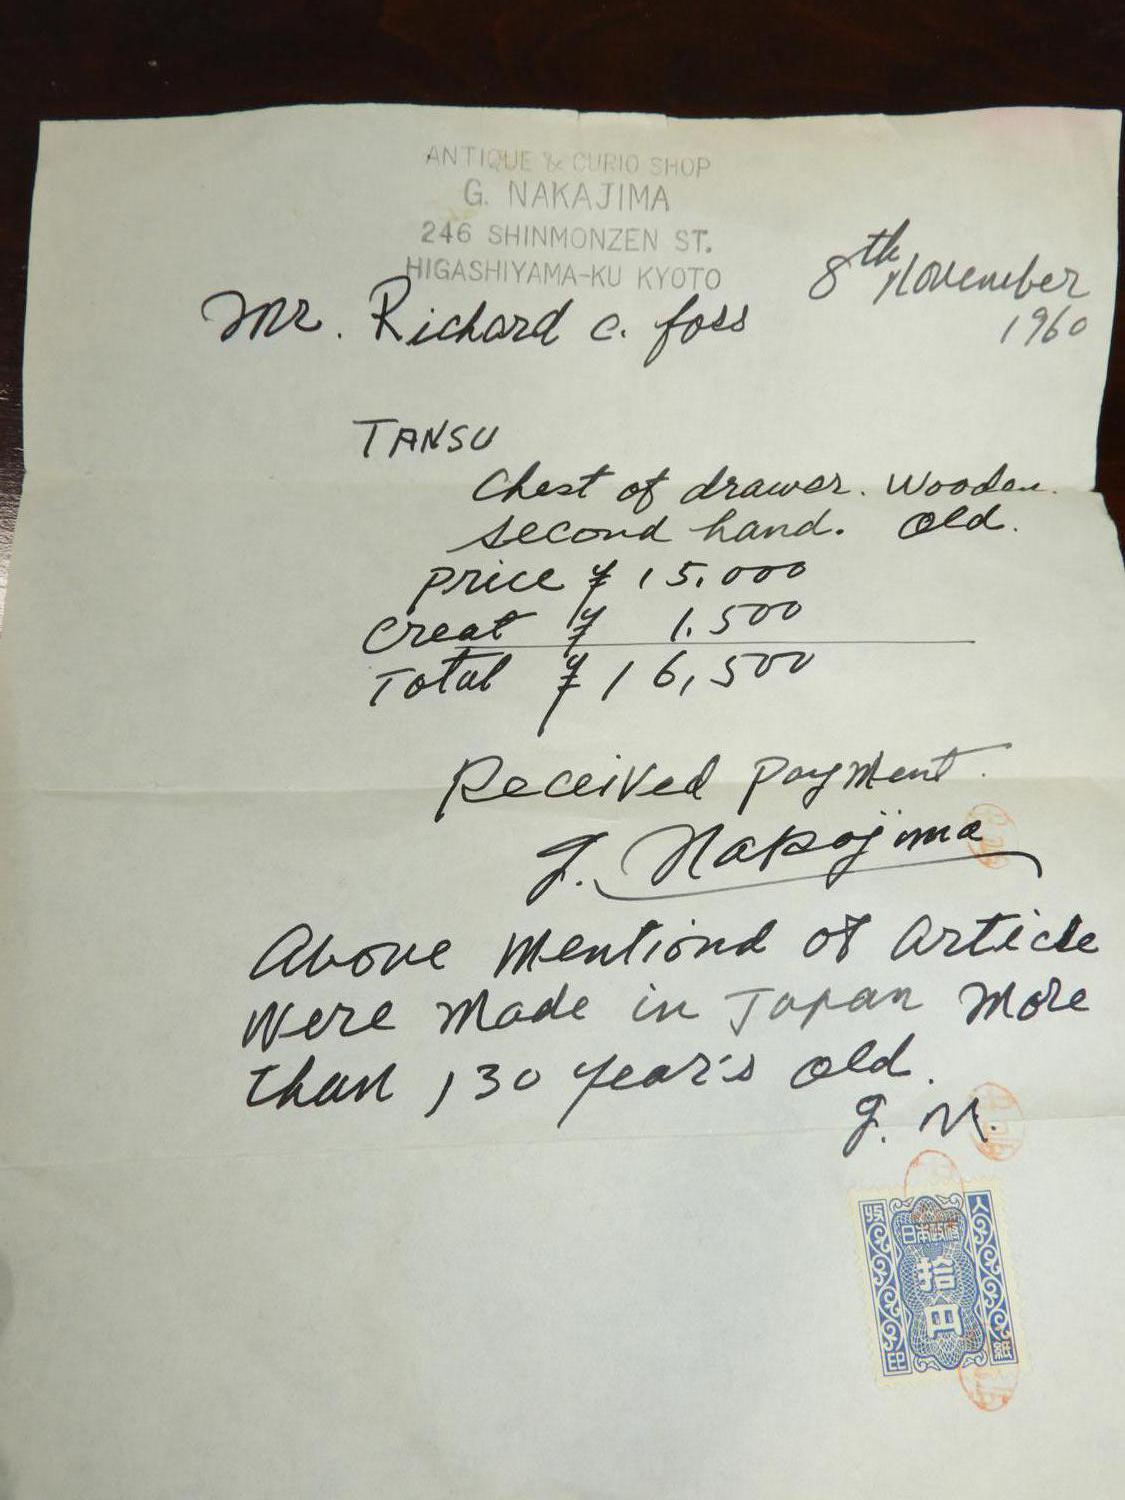 ANTIQUE & CURIO SHOP
G. NAKAJIMA
246 SHINMONZEN ST.
HIGASHIYAMA-KU KYOTO
8th November
1960
Mr. Richard C. Foss
TANSU
Chest of drawer. Wooden.
second hand. Old.
Price ¥ 15.000
Creat ¥ 1.500
Total ¥ 16,500
Received Payment.
G. Nakajima
Above Mentiond of Article
Were Made in Japan More
than 130 year's old.
G. N.
収入
日本政府
拾円
印紙